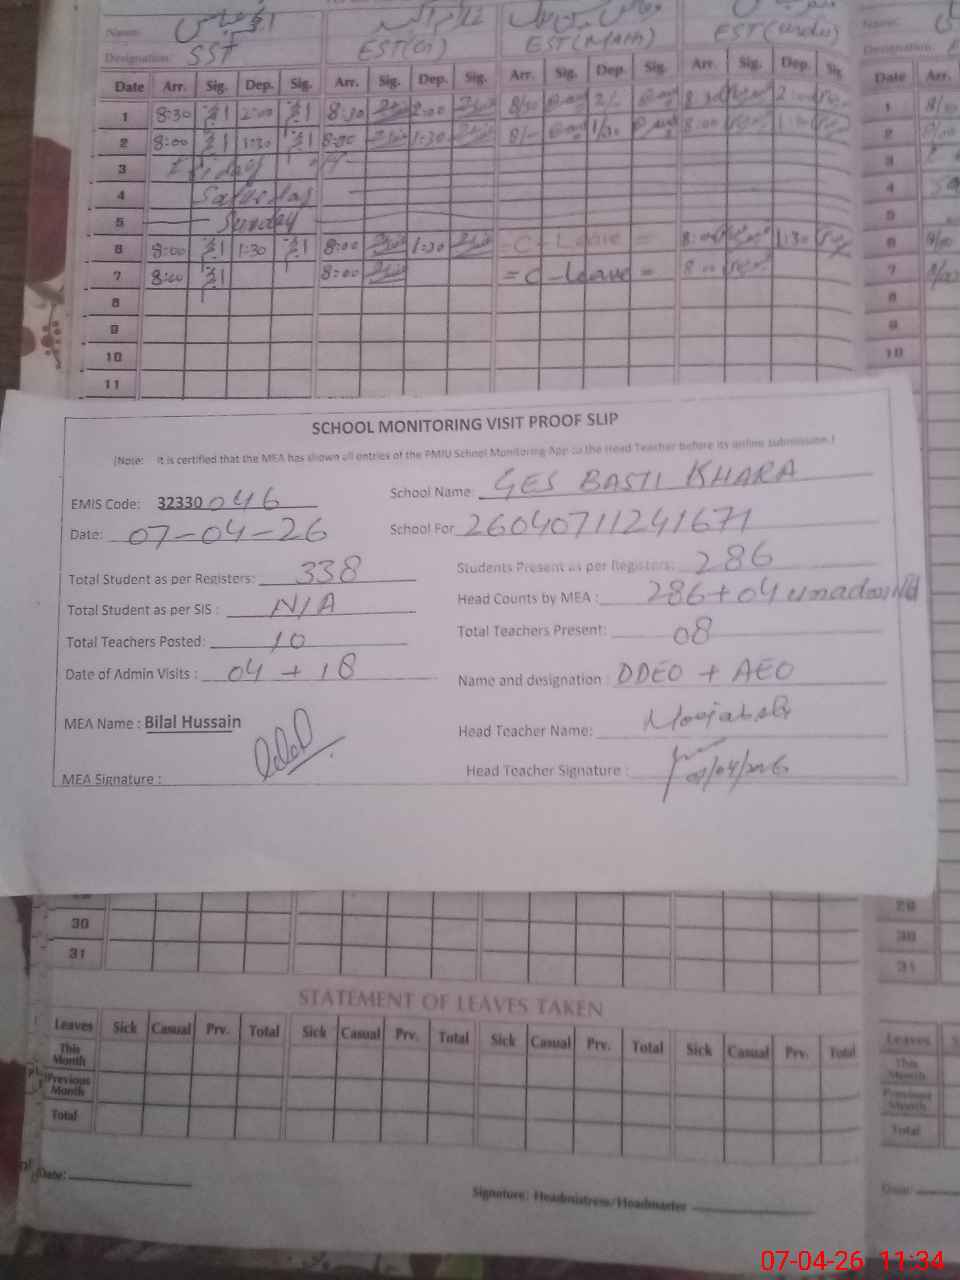 Name:
Designation: SST EST(Gi) EST(Math) EST(Urdu) Designation:
Date Arr. Sig. Dep. Sig. Arr. Sig. Dep. Sig. Arr. Sig. Dep. Sig. Arr. Sig. Dep. Sig. Date Arr.
1 8:30 2:00 8:30 2:00 8/30 2/- 8:30 2:00 1
2 8:00 1:30 8:00 1:30 8/- 1/30 8:00 1:30 2
3 Friday 3
4 Saturday 4
5 Sunday 5
6 8:00 1:30 8:00 1:30 - C - Leave = 8:00 1:30 6
7 8:00 8:00 = C - Leave = 8:00 7
8 8
9 9
10 10
11
SCHOOL MONITORING VISIT PROOF SLIP
(Note: It is certified that the MEA has shown all entries of the PMIU School Monitoring App to the Head Teacher before its online submission.)
EMIS Code: 32330046 School Name: GES BASTI KHARA
Date: 07-04-26 School For 26040711241671
Total Student as per Registers: 338 Students Present as per Registers: 286
Total Student as per SIS : N/A Head Counts by MEA : 286+04
Total Teachers Posted: 10 Total Teachers Present: 08
Date of Admin Visits : 04 + 18 Name and designation : DDEO + AEO
MEA Name : Bilal Hussain Head Teacher Name:
MEA Signature : Head Teacher Signature : 07/04/2026
29
30 30
31 31
STATEMENT OF LEAVES TAKEN
Leaves Sick Casual Prv. Total Sick Casual Prv. Total Sick Casual Prv. Total Sick Casual Prv. Total Leaves
This Month This Month
Previous Month Previous Month
Total Total
Date: Signature: Headmistress/Headmaster Date:
07-04-26 11:34